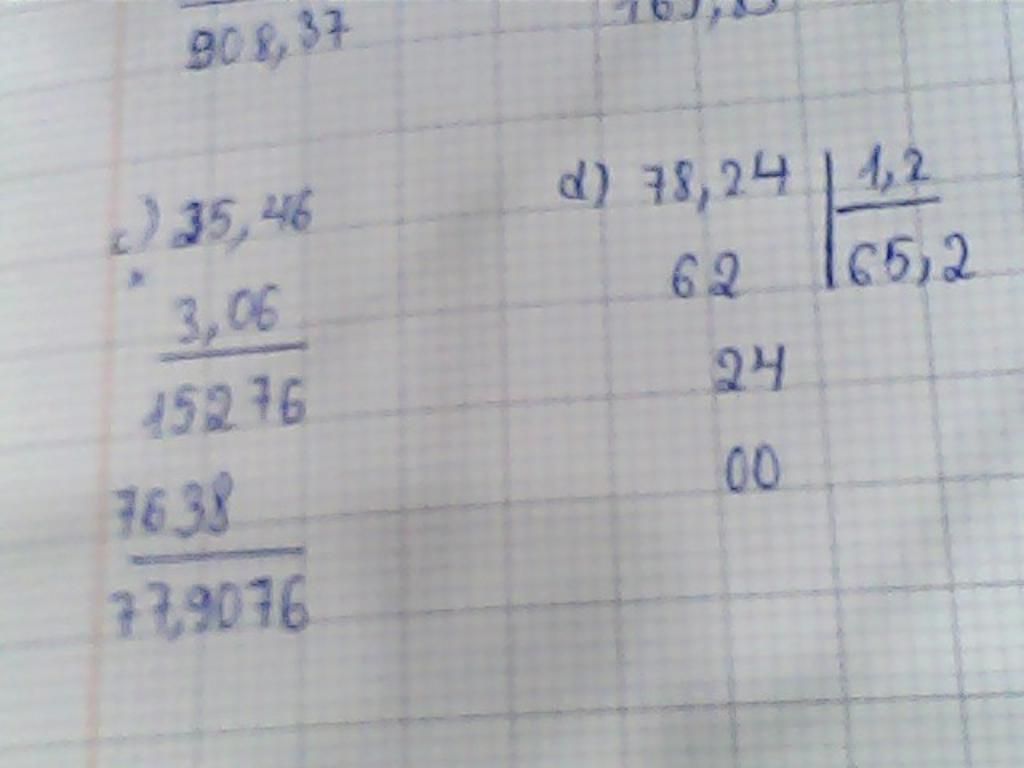 908,37
c) 25,46
×
3,06
15276
7638
77,9076
d) 78,24 | 1,2
62 65,2
24
00